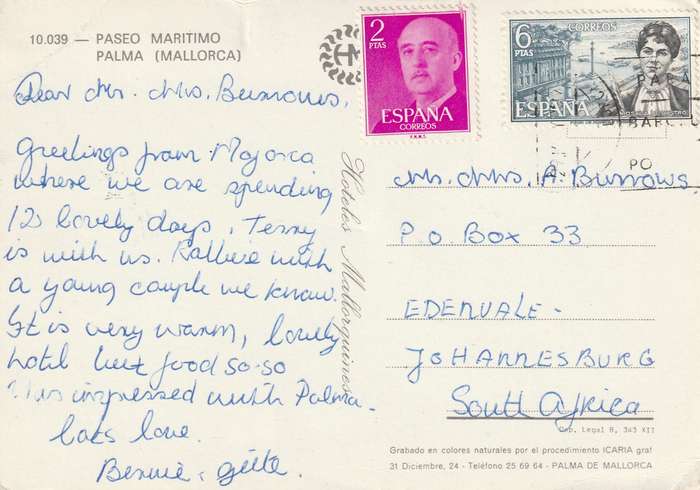 10.039 — PASEO MARITIMO
PALMA (MALLORCA)
Dear Mr. Mrs. Burrows.
Greetings from Majorca
where we are spending
12 lovely days. Terry
is with us. Kallie with
a young couple we know.
It is very warm, lovely
hotel but food so-so
impressed with Palma.
lots love.
Bennie & Gitte.
Hoteles Mallorquines
2
PTAS
ESPAÑA
CORREOS
F.N.M.T.
6
PTAS
CORREOS
ESPAÑA
PARA
BARCEL
PO
Mr. Mrs. A. Burrows.
P.O. BOX 33
EDENVALE-
JOHANNESBURG
South Africa
Dep. Legal B. 343 XII
Grabado en colores naturales por el procedimiento ICARIA graf
31 Diciembre, 24 - Teléfono 25 69 64 - PALMA DE MALLORCA